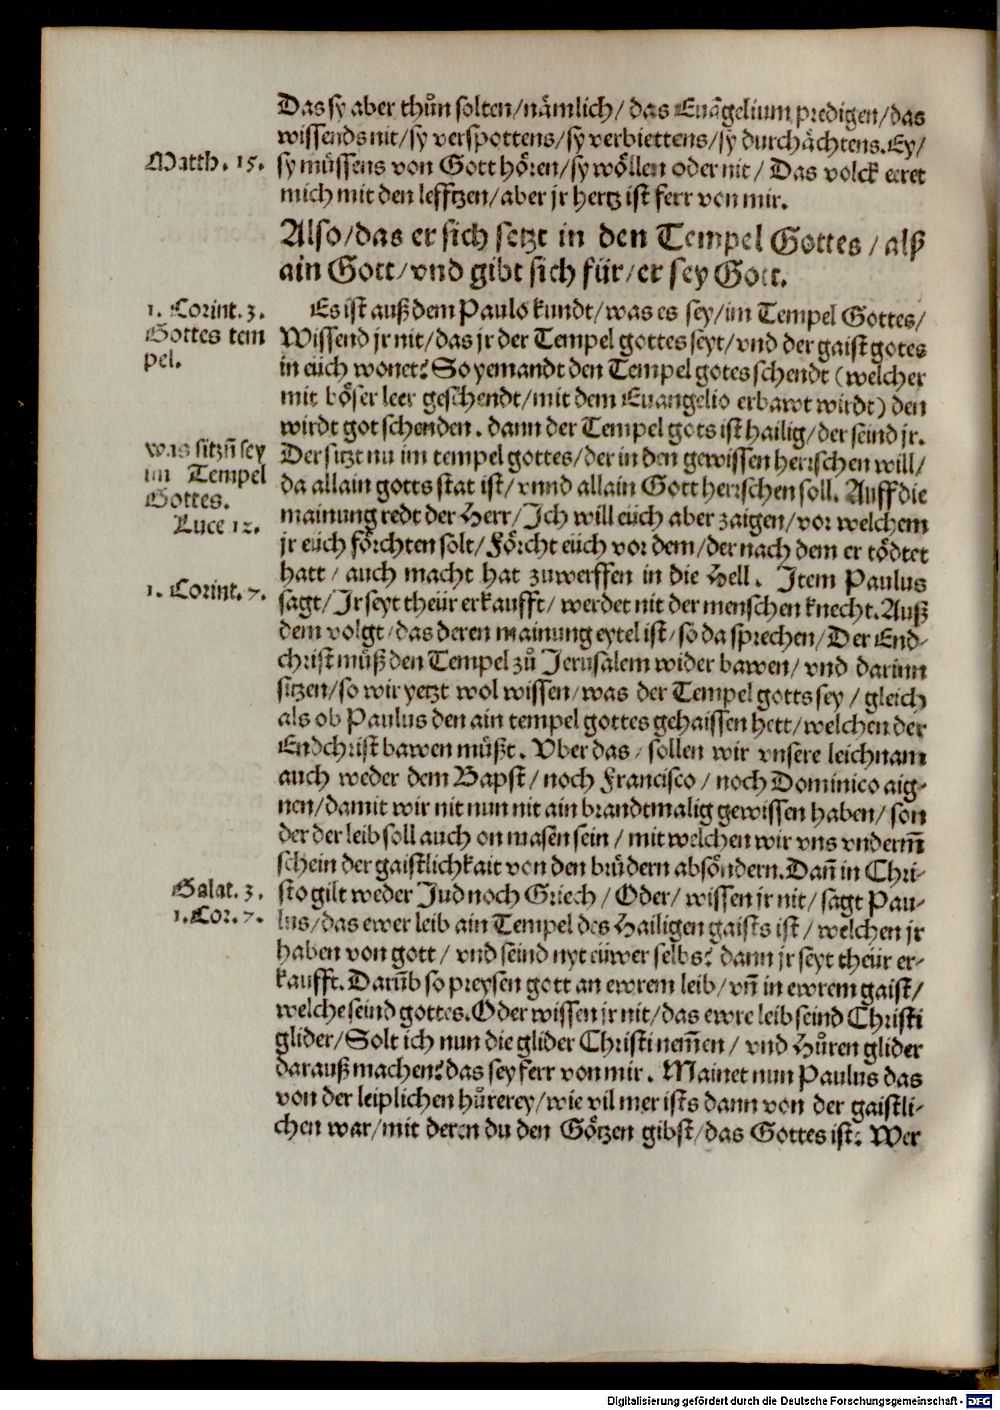 Das sy aber thůn solten/nämlich/das Euãgelium predigen/das
wissends nit/sy verspottens/sy verbiettens/sy durchächtens.Ey/
Matth. 15.
sy müssens von Gott hören/sy wöllen oder nit/ Das volck eeret
mich mit den lefftzen/aber jr hertz ist ferr von mir.
Also/das er sich setzt in den Tempel Gottes/alß
ain Gott/vnd gibt sich für/er sey Gott.
1. Corint. 3.
Gottes tem
pel.
Es ist auß dem Paulo kundt/was es sey/im Tempel Gottes/
Wissend jr nit/das jr der Tempel gottes seyt/vnd der gaist gotes
in eüch wonet? So yemandt den Tempel gotes schendt (welcher
mit böser leer geschendt/mit dem Euangelio erbawt wirdt) den
wirdt got schenden. dann der Tempel gots ist hailig/der seind jr.
was sitzñ sey
im Tempel
Gottes.
Luce 12.
Der sitzt nu im tempel gottes/der in den gewissen herrschen will/
da allain gotts stat ist/vnnd allain Gott herrschen soll. Auff die
mainung redt der Herr/Ich will eüch aber zaigen/vor welchem
jr eüch förchten solt/Förcht eüch vor dem/der nach dem er tödtet
hatt/auch macht hat zuwerffen in die Hell. Item Paulus
1. Corint. 7.
sagt/Ir seyt theür erkaufft/werdet nit der menschen knecht.Auß
dem volgt/das deren mainung eytel ist/so da sprechen/Der End-
christ můß den Tempel zů Jerusalem wider bawen/vnd darinn
sitzen/so wir yetzt wol wissen/was der Tempel gotts sey/gleich
als ob Paulus den ain tempel gottes gehaissen hett/welchen der
Endchrist bawen müßt. Vber das/sollen wir vnsere leichnam
auch weder dem Bapst/noch Francisco/noch Dominico aig-
nen/damit wir nit nun nit ain brandtmalig gewissen haben/son
der der leib soll auch on masen sein/mit welchen wir vns vnderm̃
schein der gaistlichkait von den brüdern absöndern.Dañ in Chri-
Galat. 3.
1. Cor. 7.
sto gilt weder Jud noch Griech/Oder/wissen jr nit/sagt Pau-
lus/das ewer leib ain Tempel des Hailigen gaists ist/welchen jr
haben von gott/vnd seind nyt eüwer selbs? dann jr seyt theür er-
kaufft.Darũb so preysen gott an ewrem leib/vñ in ewrem gaist/
welche seind gottes.Oder wissen jr nit/das ewre leib seind Christi
glider/Solt ich nun die glider Christi nem̃en/vnd Hůren glider
darauß machen? das sey ferr von mir. Mainet nun Paulus das
von der leiplichen hůrerey/wie vil mer ists dann von der gaistli-
chen war/mit deren du den Götzen gibst/das Gottes ist? Wer
Digitalisierung gefördert durch die Deutsche Forschungsgemeinschaft - DFG